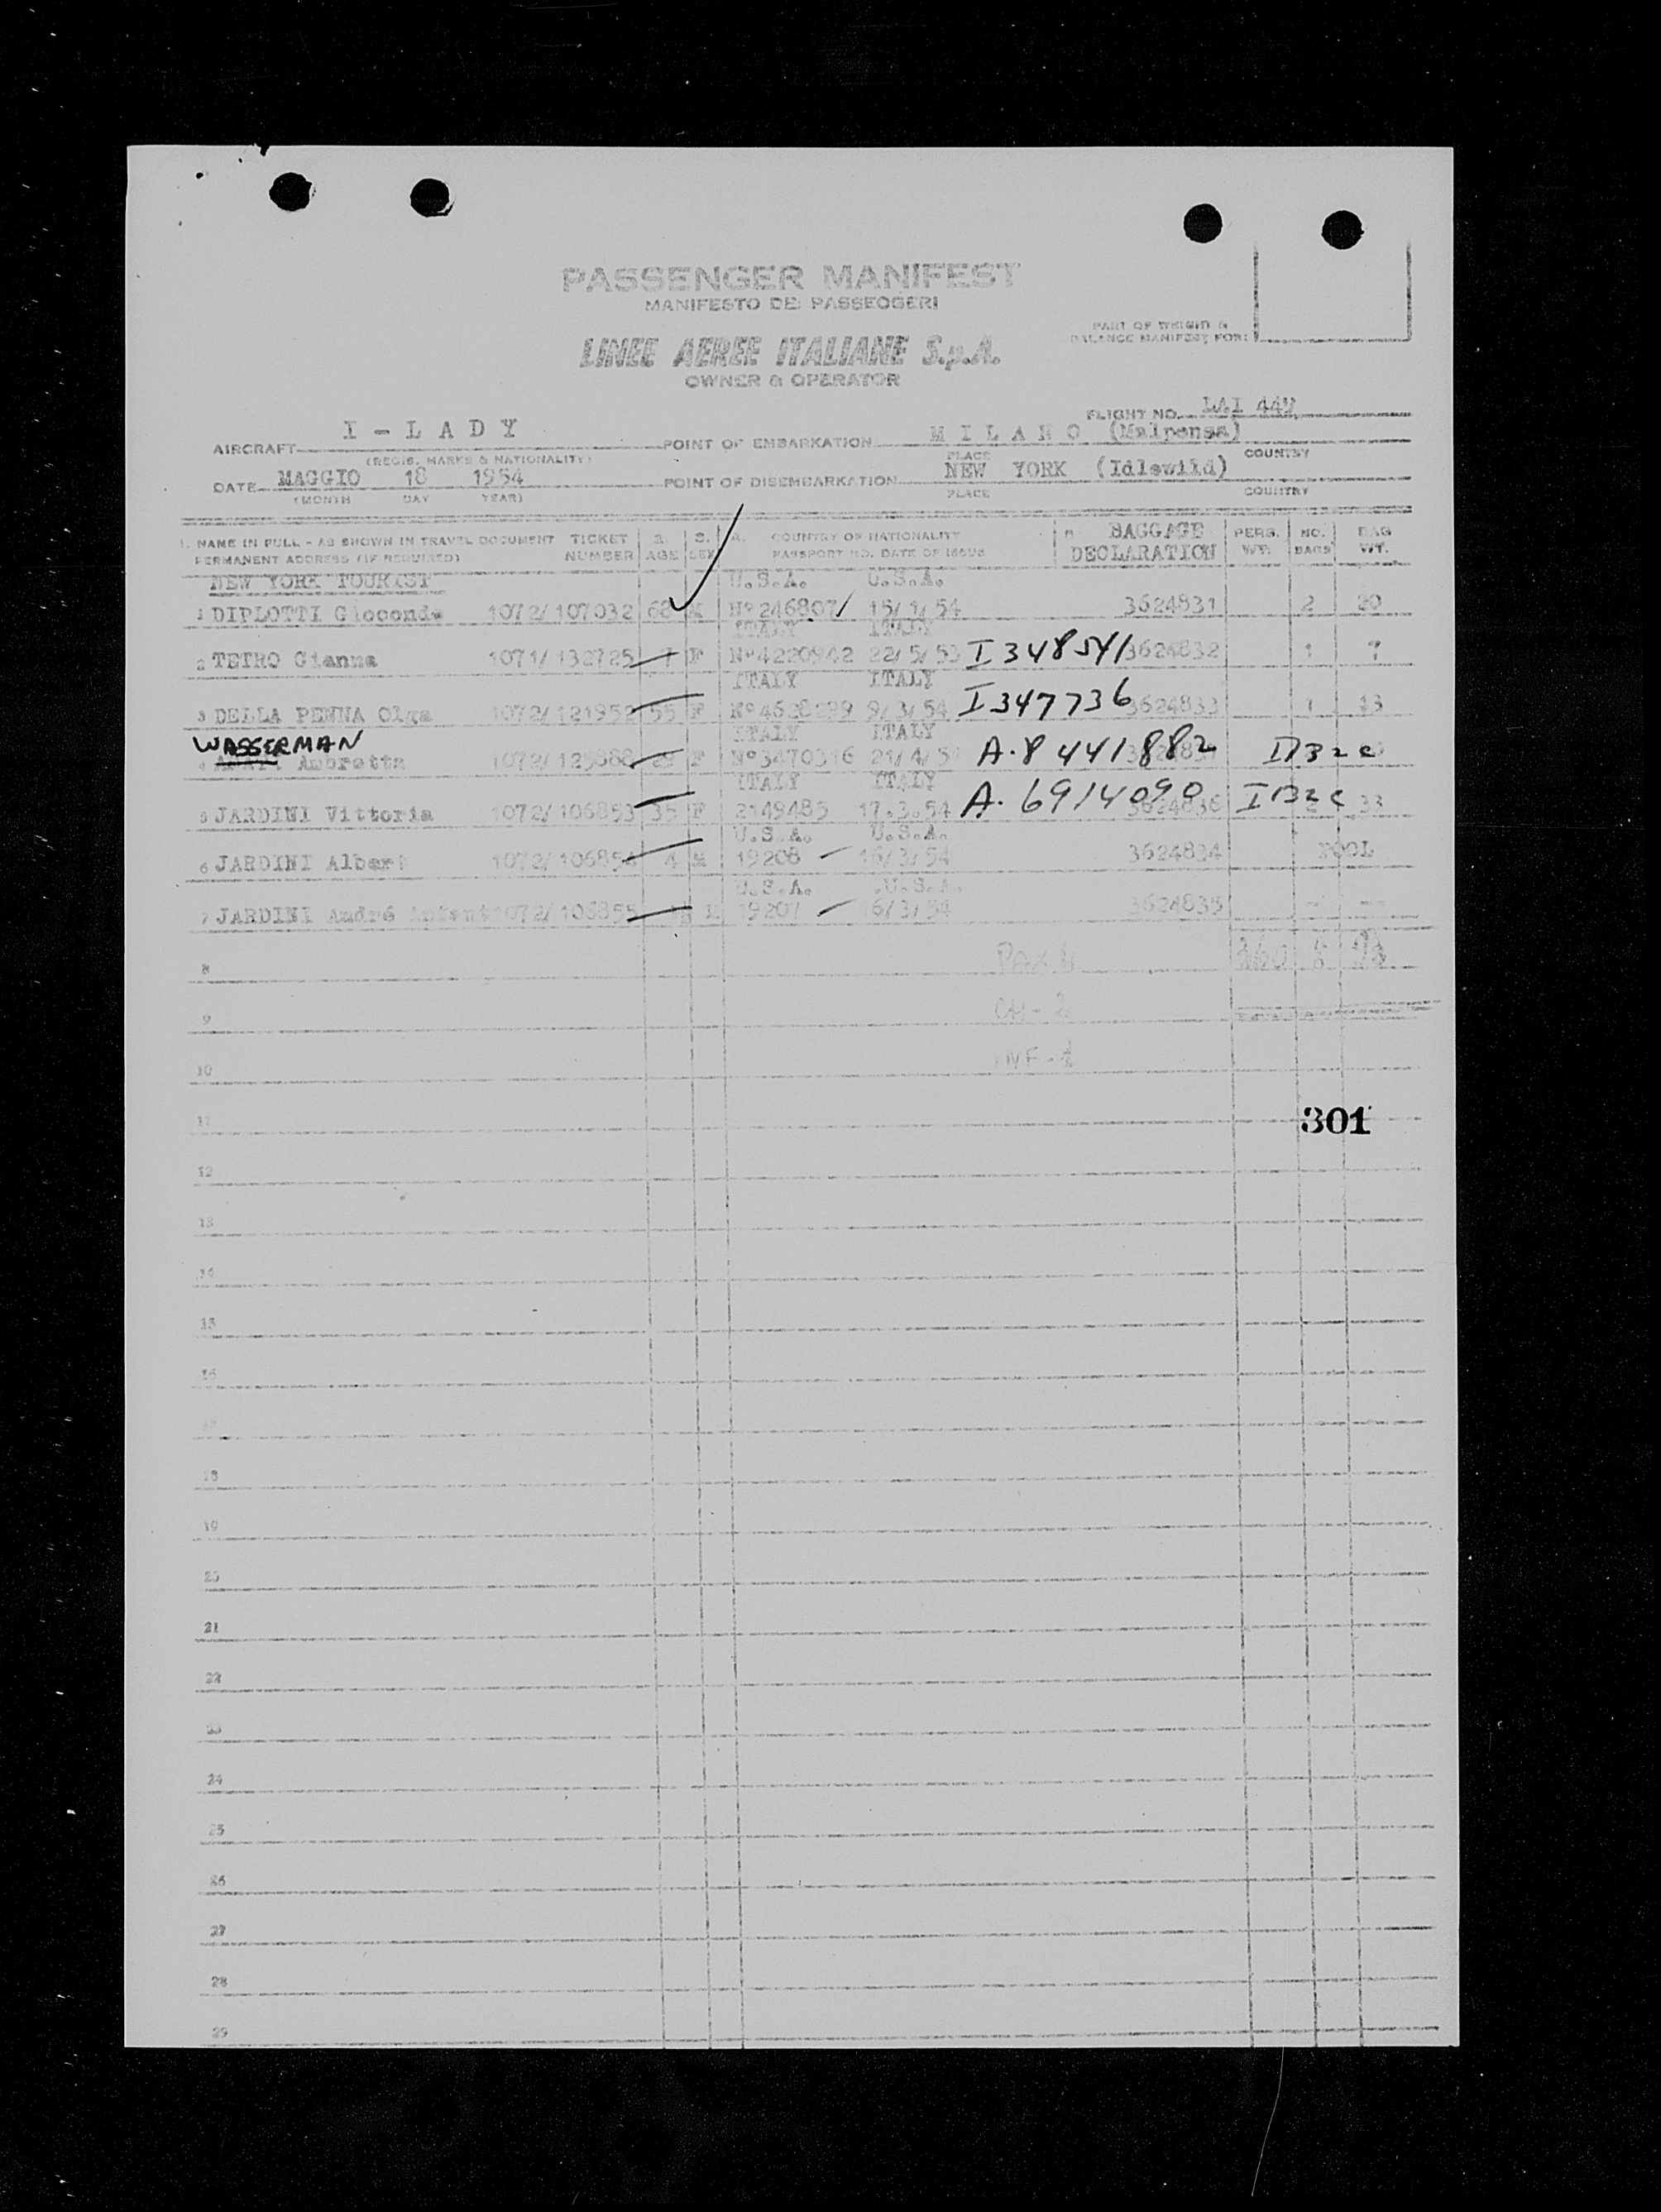 PASSENGER MANIFEST
MANIFESTO DEI PASSEGGERI
LINEE AEREE ITALIANE S.p.A.
OWNER & OPERATOR
PART OF WEIGHT &
BALANCE MANIFEST FOR:
FLIGHT NO. LAI 449
AIRCRAFT I - L A D Y POINT OF EMBARKATION M I L A N O (Malpensa)
(REGIS. MARKS & NATIONALITY) PLACE COUNTRY
DATE MAGGIO 18 1954 POINT OF DISEMBARKATION NEW YORK (Idlewild)
(MONTH DAY YEAR) PLACE COUNTRY
1. NAME IN FULL - AS SHOWN IN TRAVEL DOCUMENT TICKET 2. 3. 4. COUNTRY OF NATIONALITY BAGGAGE PERS. NO. BAG
PERMANENT ADDRESS (IF REQUIRED) NUMBER AGE SEX PASSPORT NO. DATE OF ISSUE DECLARATION WT. BAGS WT.
NEW YORK TOURIST U.S.A. U.S.A.
1 DIPLOTTI Gioconda 1072/107032 68 Nº 246807/ 15/1/54 3624831 2 20
ITALY ITALY
2 TETRO Gianna 1071/132725 7 F Nº 4220942 22/5/53 I 348541 3624832 1
ITALY ITALY
3 DELLA PENNA Olga 1072/121952 55 F Nº 4628299 9/3/54 I 347736 3624833 1 13
WASSERMAN ITALY ITALY
4 Ambretta F A.8 441 882
ITALY ITALY
5 JARDINI Vittoria 1072/106853 35 F 2149485 17.3.54 A. 6914090 3624836 33
U.S.A. U.S.A.
6 JARDINI Albert 1072/106854 4 M 19208 16/3/54 3624834 POOL
U.S.A. U.S.A.
7 JARDINI André Infant 1072/106855 19207 16/3/54 3624835
8
9
10
11 301
12
13
14
15
16
17
18
19
20
21
22
23
24
25
26
27
28
29